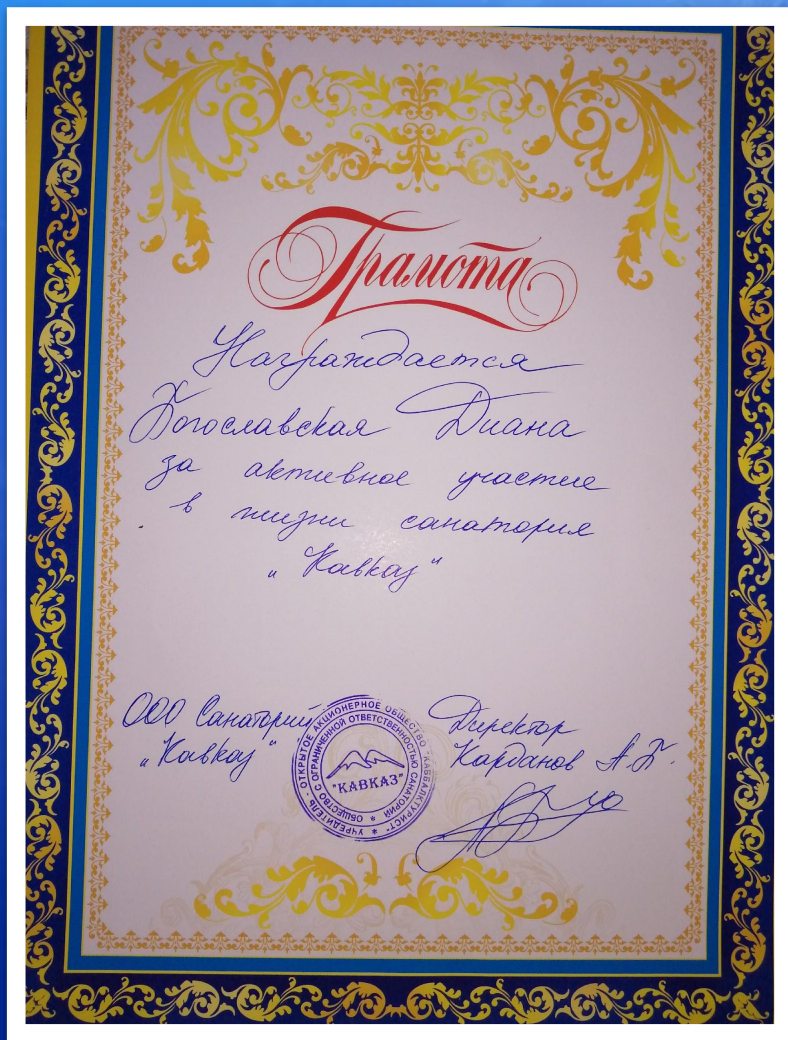 Грамота
Награждается
Богославская Диана
за активное участие
в жизни санатория
„Кавказ"
ООО Санаторий
„Кавказ"
УЧРЕДИТЕЛЬ - ОТКРЫТОЕ АКЦИОНЕРНОЕ ОБЩЕСТВО "КАББАЛКТУРИСТ" *
ОБЩЕСТВО С ОГРАНИЧЕННОЙ ОТВЕТСТВЕННОСТЬЮ САНАТОРИЙ *
"КАВКАЗ"
Директор
Карданов А.Б.